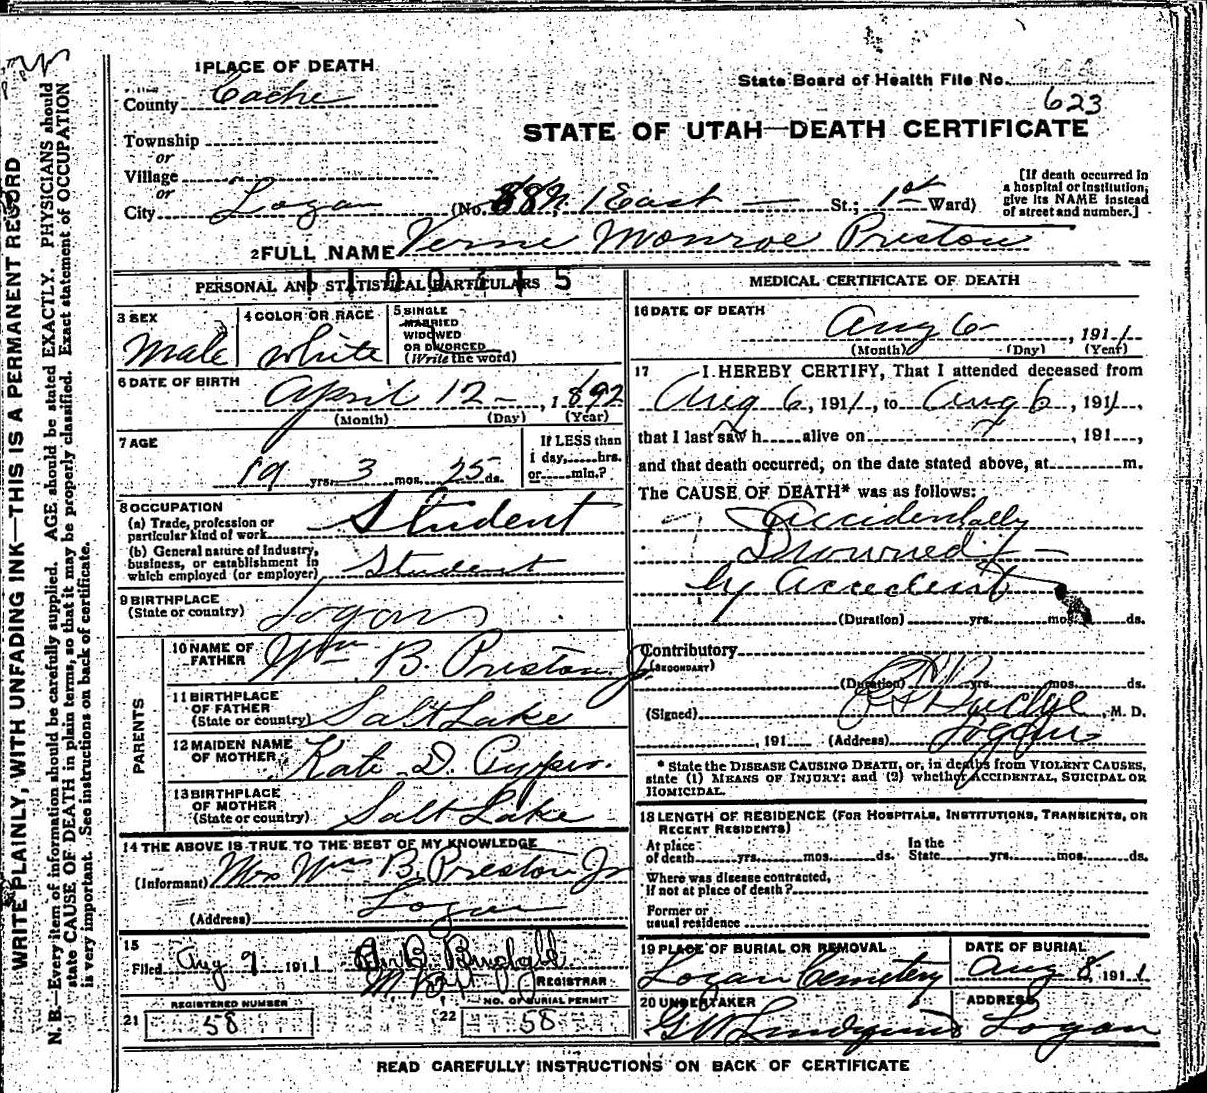 WRITE PLAINLY, WITH UNFADING INK—THIS IS A PERMANENT RECORD
N. B.—Every item of information should be carefully supplied. AGE should be stated EXACTLY. PHYSICIANS should
state CAUSE OF DEATH in plain terms, so that it may be properly classified. Exact statement of OCCUPATION
is very important. See instructions on back of certificate.
1 PLACE OF DEATH
County Cache
Township
or
Village
or
City Logan (No. 1 East — St.; 1st Ward)
State Board of Health File No.
623
STATE OF UTAH—DEATH CERTIFICATE
[If death occurred in
a hospital or institution,
give its NAME instead
of street and number.]
2 FULL NAME Verne Monroe Preston
PERSONAL AND STATISTICAL PARTICULARS
3 SEX
Male
4 COLOR OR RACE
White
5 SINGLE
MARRIED
WIDOWED
OR DIVORCED
(Write the word)
6 DATE OF BIRTH
April 12 — , 1892
(Month) (Day) (Year)
7 AGE
19 yrs. 3 mos. 25 ds.
If LESS than
1 day, hrs.
or min.?
8 OCCUPATION
(a) Trade, profession or
particular kind of work Student
(b) General nature of Industry,
business, or establishment in
which employed (or employer) Student
9 BIRTHPLACE
(State or country) Logan
PARENTS
10 NAME OF
FATHER Wm B. Preston Jr
11 BIRTHPLACE
OF FATHER
(State or country) Salt Lake
12 MAIDEN NAME
OF MOTHER Kate D. Pyper
13 BIRTHPLACE
OF MOTHER
(State or country) Salt Lake
14 THE ABOVE IS TRUE TO THE BEST OF MY KNOWLEDGE
(Informant) Mrs Wm B. Preston Jr
(Address) Logan
15
Filed Aug 9 1911
REGISTRAR
REGISTERED NUMBER
21 58
NO. OF BURIAL PERMIT
22 58
MEDICAL CERTIFICATE OF DEATH
16 DATE OF DEATH
Aug 6 — , 1911
(Month) (Day) (Year)
17 I HEREBY CERTIFY, That I attended deceased from
Aug 6, 1911, to Aug 6, 1911,
that I last saw h alive on , 191 ,
and that death occurred, on the date stated above, at m.
The CAUSE OF DEATH* was as follows:
Accidentally
Drowned —
by Accident
(Duration) yrs. mos. ds.
Contributory
(SECONDARY)
(Duration) yrs. mos. ds.
(Signed) Budge, M. D.
, 191 (Address) Logan
* State the DISEASE CAUSING DEATH, or, in deaths from VIOLENT CAUSES,
state (1) MEANS OF INJURY; and (2) whether ACCIDENTAL, SUICIDAL OR
HOMICIDAL.
18 LENGTH OF RESIDENCE (FOR HOSPITALS, INSTITUTIONS, TRANSIENTS, OR
RECENT RESIDENTS)
At place
of death yrs. mos. ds.
In the
State yrs. mos. ds.
Where was disease contracted,
if not at place of death?
Former or
usual residence
19 PLACE OF BURIAL OR REMOVAL
Logan Cemetery
DATE OF BURIAL
Aug 8, 1911
20 UNDERTAKER
G W Lindquist
ADDRESS
Logan
READ CAREFULLY INSTRUCTIONS ON BACK OF CERTIFICATE